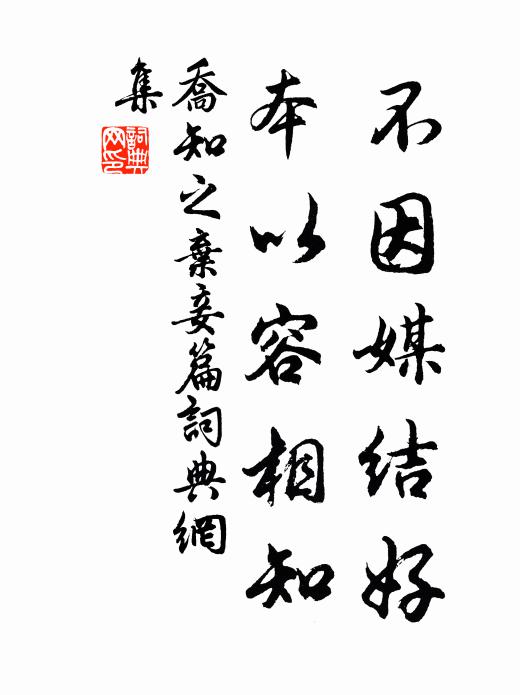 不因媒結好
本以容相知
喬知之棄妾篇詞典網
集
詞典網印